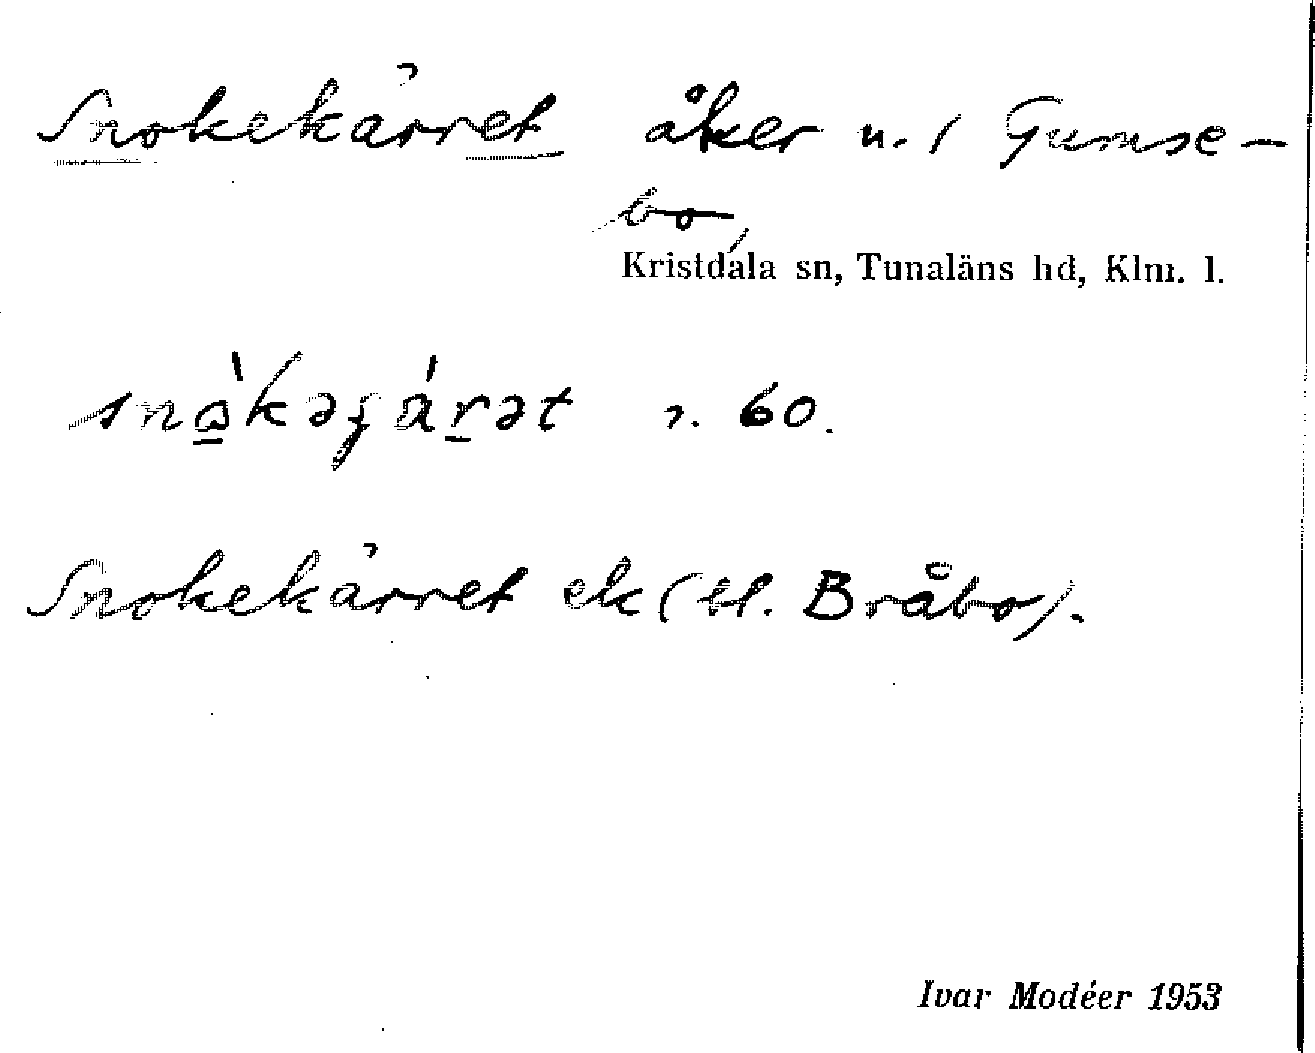 Snokekärret åker n. 1 Gumse-
bo,
Kristdala sn, Tunaläns hd, Klm. l.
60.
Snokekärret ek (tl. Bråbo).
Ivar Modéer 1953